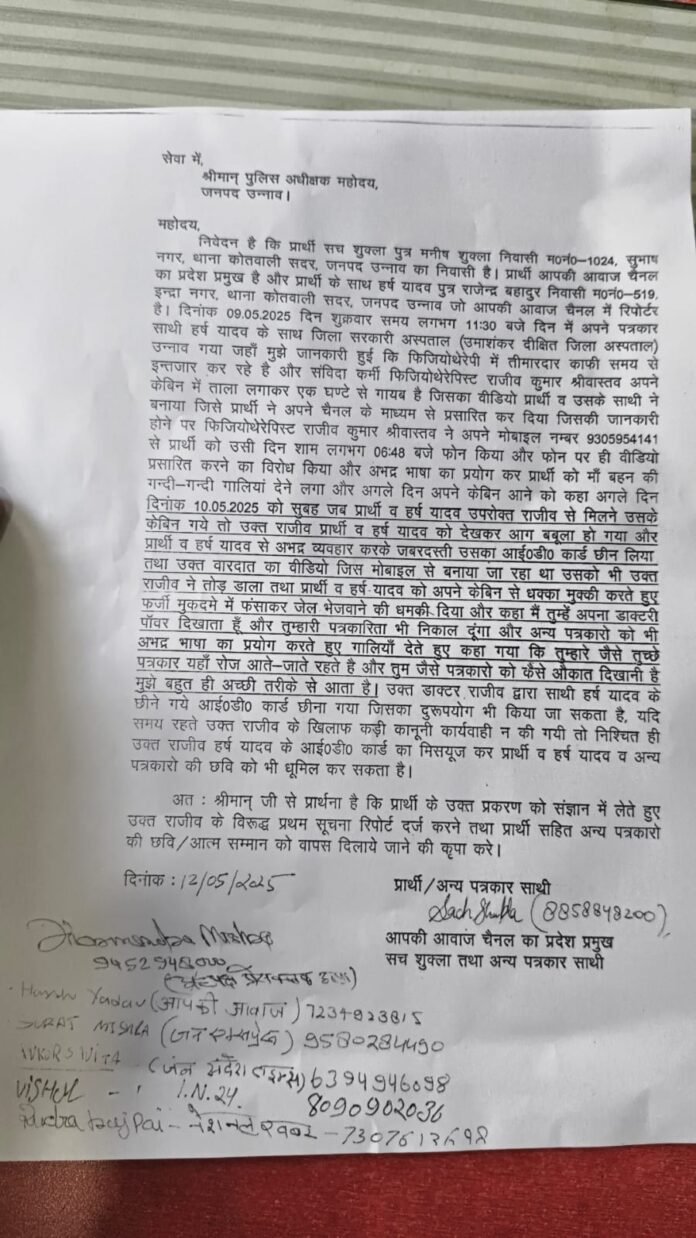 सेवा में,
श्रीमान् पुलिस अधीक्षक महोदय,
जनपद उन्नाव।
महोदय,
निवेदन है कि प्रार्थी सच शुक्ला पुत्र मनीष शुक्ला निवासी म०नं०-1024, सुभाष
नगर, थाना कोतवाली सदर, जनपद उन्नाव का निवासी है। प्रार्थी आपकी आवाज चैनल
का प्रदेश प्रमुख है और प्रार्थी के साथ हर्ष यादव पुत्र राजेन्द्र बहादुर निवासी म०नं०-519,
इन्द्रा नगर, थाना कोतवाली सदर, जनपद उन्नाव जो आपकी आवाज चैनल में रिपोर्टर
है। दिनांक 09.05.2025 दिन शुक्रवार समय लगभग 11:30 बजे दिन में अपने पत्रकार
साथी हर्ष यादव के साथ जिला सरकारी अस्पताल (उमाशंकर दीक्षित जिला अस्पताल)
उन्नाव गया जहाँ मुझे जानकारी हुई कि फिजियोथेरेपी में तीमारदार काफी समय से
इन्तजार कर रहे है और संविदा कर्मी फिजियोथेरेपिस्ट राजीव कुमार श्रीवास्तव अपने
केबिन में ताला लगाकर एक घण्टे से गायब है जिसका वीडियो प्रार्थी व उसके साथी ने
बनाया जिसे प्रार्थी ने अपने चैनल के माध्यम से प्रसारित कर दिया जिसकी जानकारी
होने पर फिजियोथेरेपिस्ट राजीव कुमार श्रीवास्तव ने अपने मोबाइल नम्बर 9305954141
से प्रार्थी को उसी दिन शाम लगभग 06:48 बजे फोन किया और फोन पर ही वीडियो
प्रसारित करने का विरोध किया और अभद्र भाषा का प्रयोग कर प्रार्थी को माँ बहन की
गन्दी-गन्दी गालियां देने लगा और अगले दिन अपने केबिन आने को कहा अगले दिन
दिनांक 10.05.2025 को सुबह जब प्रार्थी व हर्ष यादव उपरोक्त राजीव से मिलने उसके
केबिन गये तो उक्त राजीव प्रार्थी व हर्ष यादव को देखकर आग बबूला हो गया और
प्रार्थी व हर्ष यादव से अभद्र व्यवहार करके जबरदस्ती उसका आई०डी० कार्ड छीन लिया
तथा उक्त वारदात का वीडियो जिस मोबाइल से बनाया जा रहा था उसको भी उक्त
राजीव ने तोड़ डाला तथा प्रार्थी व हर्ष यादव को अपने केबिन से धक्का मुक्की करते हुए
फर्जी मुकदमे में फंसाकर जेल भेजवाने की धमकी दिया और कहा मैं तुम्हें अपना डाक्टरी
पॉवर दिखाता हूँ और तुम्हारी पत्रकारिता भी निकाल दूंगा और अन्य पत्रकारो को भी
अभद्र भाषा का प्रयोग करते हुए गालियाँ देते हुए कहा गया कि तुम्हारे जैसे तुच्छे
पत्रकार यहाँ रोज आते-जाते रहते है और तुम जैसे पत्रकारो को कैसे औकात दिखानी है
मुझे बहुत ही अच्छी तरीके से आता है। उक्त डाक्टर राजीव द्वारा साथी हर्ष यादव के
छीने गये आई०डी० कार्ड छीना गया जिसका दुरूपयोग भी किया जा सकता है, यदि
समय रहते उक्त राजीव के खिलाफ कड़ी कानूनी कार्यवाही न की गयी तो निश्चित ही
उक्त राजीव हर्ष यादव के आई०डी० कार्ड का मिसयूज कर प्रार्थी व हर्ष यादव व अन्य
पत्रकारो की छवि को भी धूमिल कर सकता है।
अत : श्रीमान् जी से प्रार्थना है कि प्रार्थी के उक्त प्रकरण को संज्ञान में लेते हुए
उक्त राजीव के विरूद्ध प्रथम सूचना रिपोर्ट दर्ज करने तथा प्रार्थी सहित अन्य पत्रकारो
की छवि/आत्म सम्मान को वापस दिलाये जाने की कृपा करे।
दिनांक : 12/05/2025
प्रार्थी/अन्य पत्रकार साथी
Sach Shukla (8858848200)
आपकी आवाज चैनल का प्रदेश प्रमुख
सच शुक्ला तथा अन्य पत्रकार साथी
Harsh Yadav (आपकी आवाज) 7234923815
9580284490
6394946098
VISHAL - I.N.24. 8090902036
Rudra bajpai - नेशनल खबर -